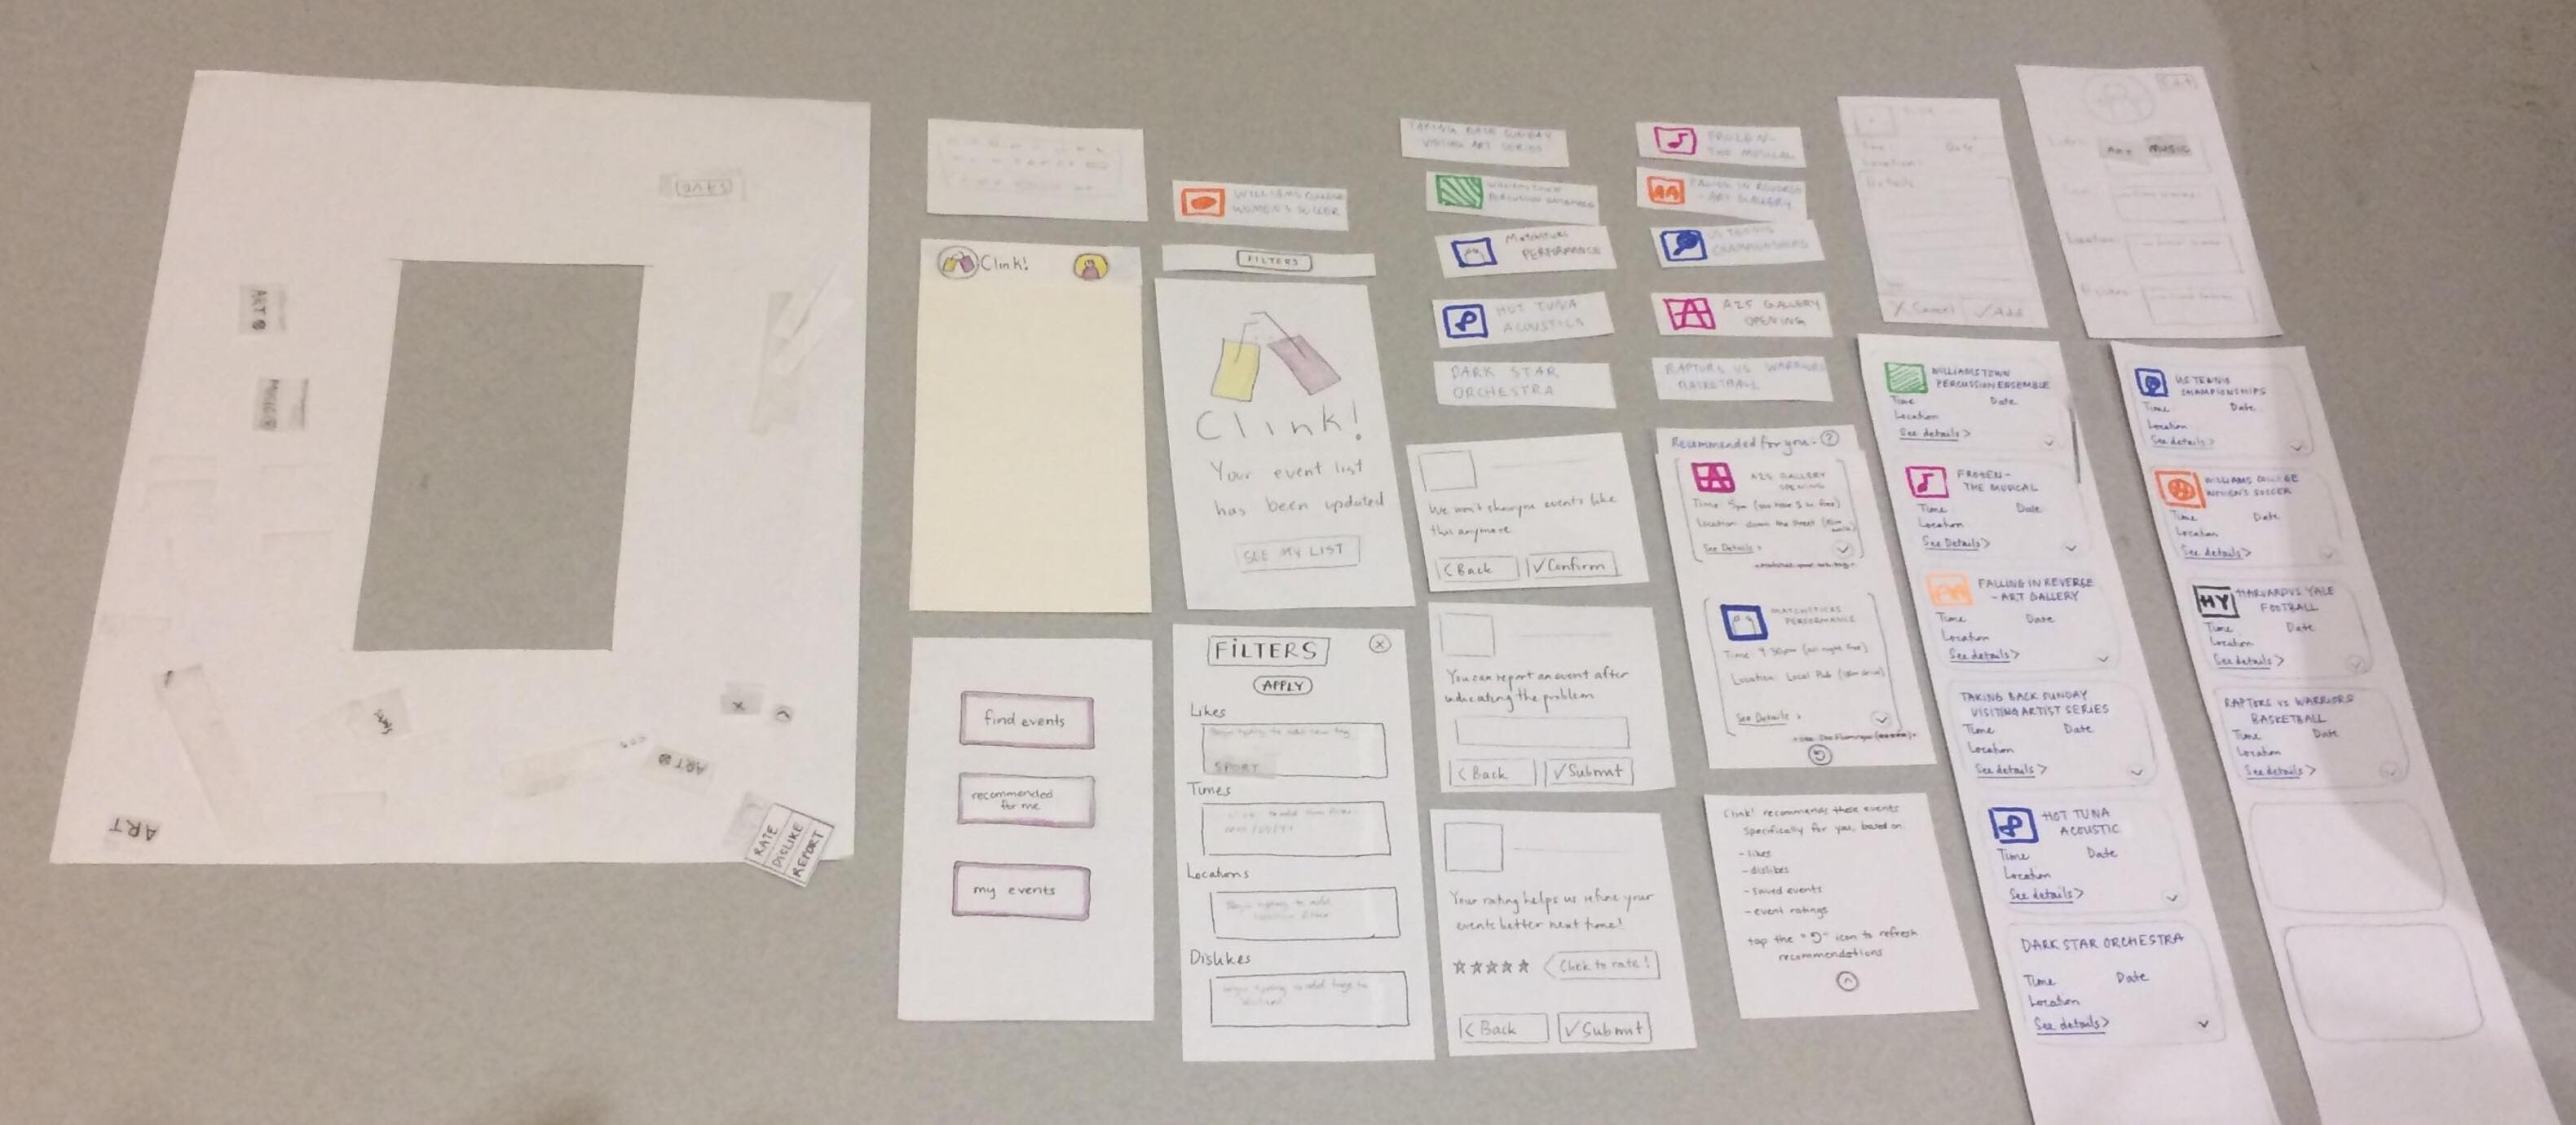 SAVE
ART ⊗
MUSIC ⊗
ART ⊗
X
ART
RATE
DISLIKE
REPORT
Clink!
find events
recommended
for me
my events
WILLIAMS COLLEGE
WOMEN'S SOCCER
FILTERS
Clink!
Your event list
has been updated
SEE MY LIST
FILTERS
X
APPLY
Likes
SPORT
Times
Locations
Dislikes
TAKING BACK SUNDAY
VISITING ART SERIES
WILLIAMSTOWN
PERCUSSION ENSEMBLE
PERFORMANCE
HOT TUNA
ACOUSTICS
DARK STAR
ORCHESTRA
We won't show you events like
this anymore
< Back
✓ Confirm
You can report an event after
indicating the problem
< Back
✓ Submit
Your rating helps us refine your
events better next time!
☆☆☆☆☆
Click to rate!
< Back
✓ Submit
FROZEN-
THE MUSICAL
FALLING IN REVERSE
- ART GALLERY
US TENNIS
CHAMPIONSHIPS
A25 GALLERY
OPENING
RAPTORS VS WARRIORS
BASKETBALL
Recommended for you: ?
A25 GALLERY
OPENING
See Details >
MATCHSTICKS
PERFORMANCE
See Details >
Clink! recommends these events
specifically for you, based on
- likes
- dislikes
- saved events
- event ratings
tap the "↺" icon to refresh
recommendations
Date
Location
Details
X Cancel
✓ Add
WILLIAMSTOWN
PERCUSSION ENSEMBLE
Time Date
Location
See details >
FROZEN-
THE MUSICAL
Time Date
Location
See Details >
FALLING IN REVERSE
- ART GALLERY
Time Date
Location
See details >
TAKING BACK SUNDAY
VISITING ARTIST SERIES
Time Date
Location
See details >
HOT TUNA
ACOUSTIC
Time Date
Location
See details >
DARK STAR ORCHESTRA
Time Date
Location
See details >
Edit
ART MUSIC
Location
US TENNIS
CHAMPIONSHIPS
Time Date
Location
See details >
WILLIAMS COLLEGE
WOMEN'S SOCCER
Time Date
Location
See details >
HY
HARVARD VS YALE
FOOTBALL
Time Date
Location
See details >
RAPTORS VS WARRIORS
BASKETBALL
Time Date
Location
See details >